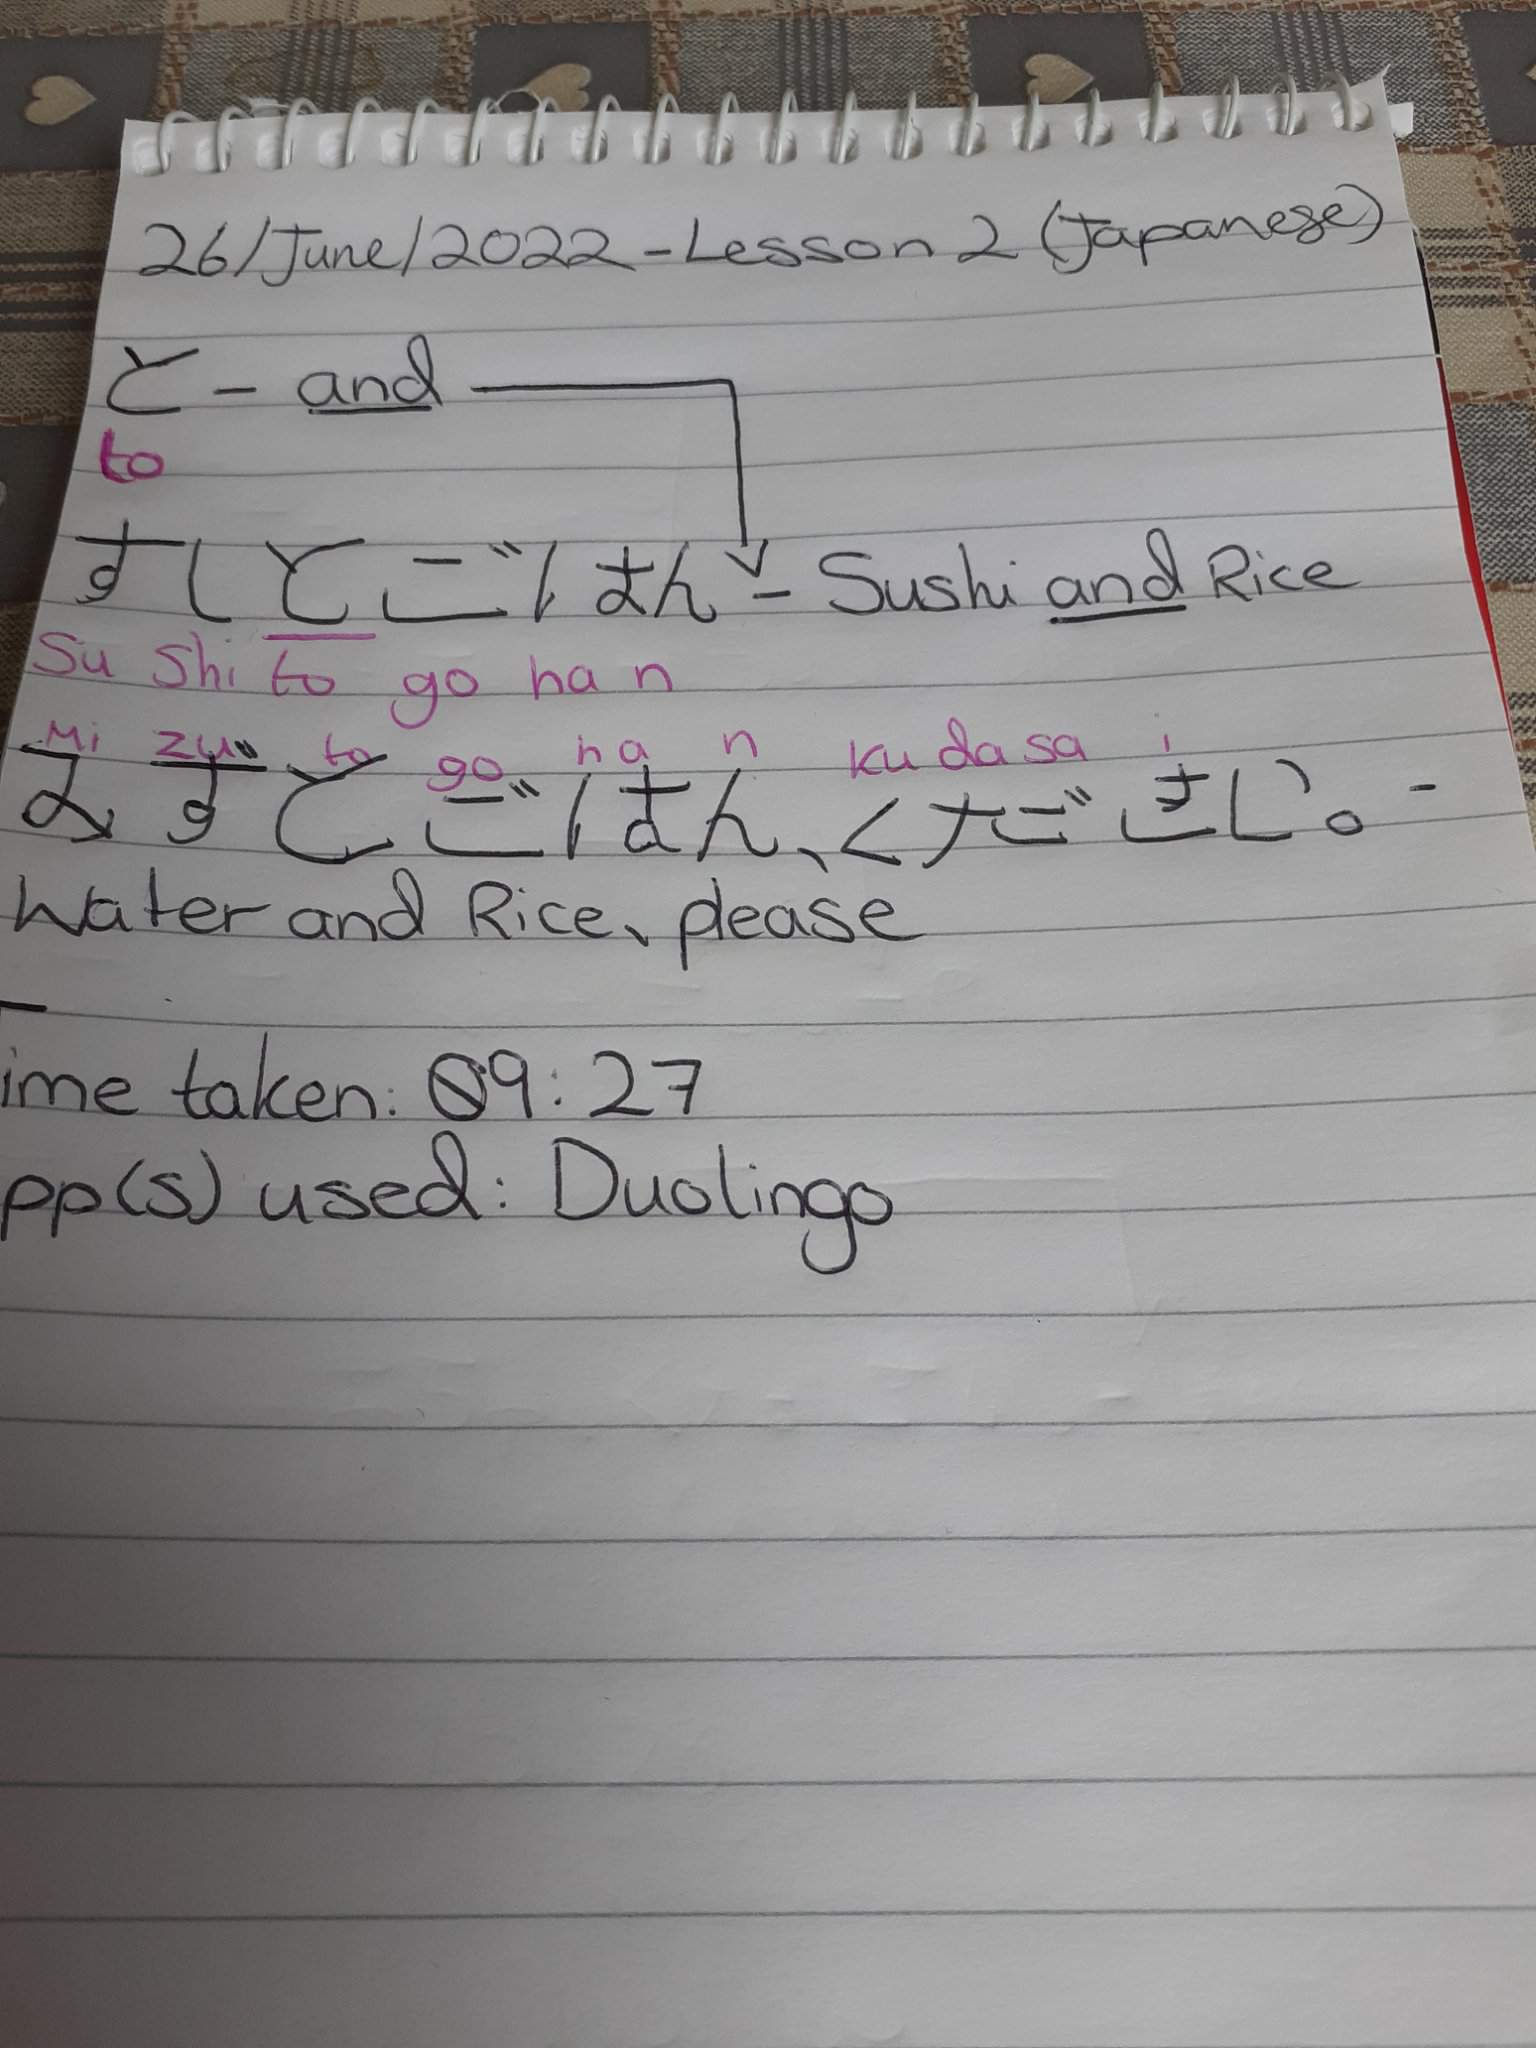 26/June/2022 - Lesson 2 (Japanese)
と - and
to
すしとごはん - Sushi and Rice
Su Shi to go ha n
Mi zu to go ha n ku da sa i
みずとごはん、ください。 -
Water and Rice, please
Time taken: 09:27
pp(s) used: Duolingo